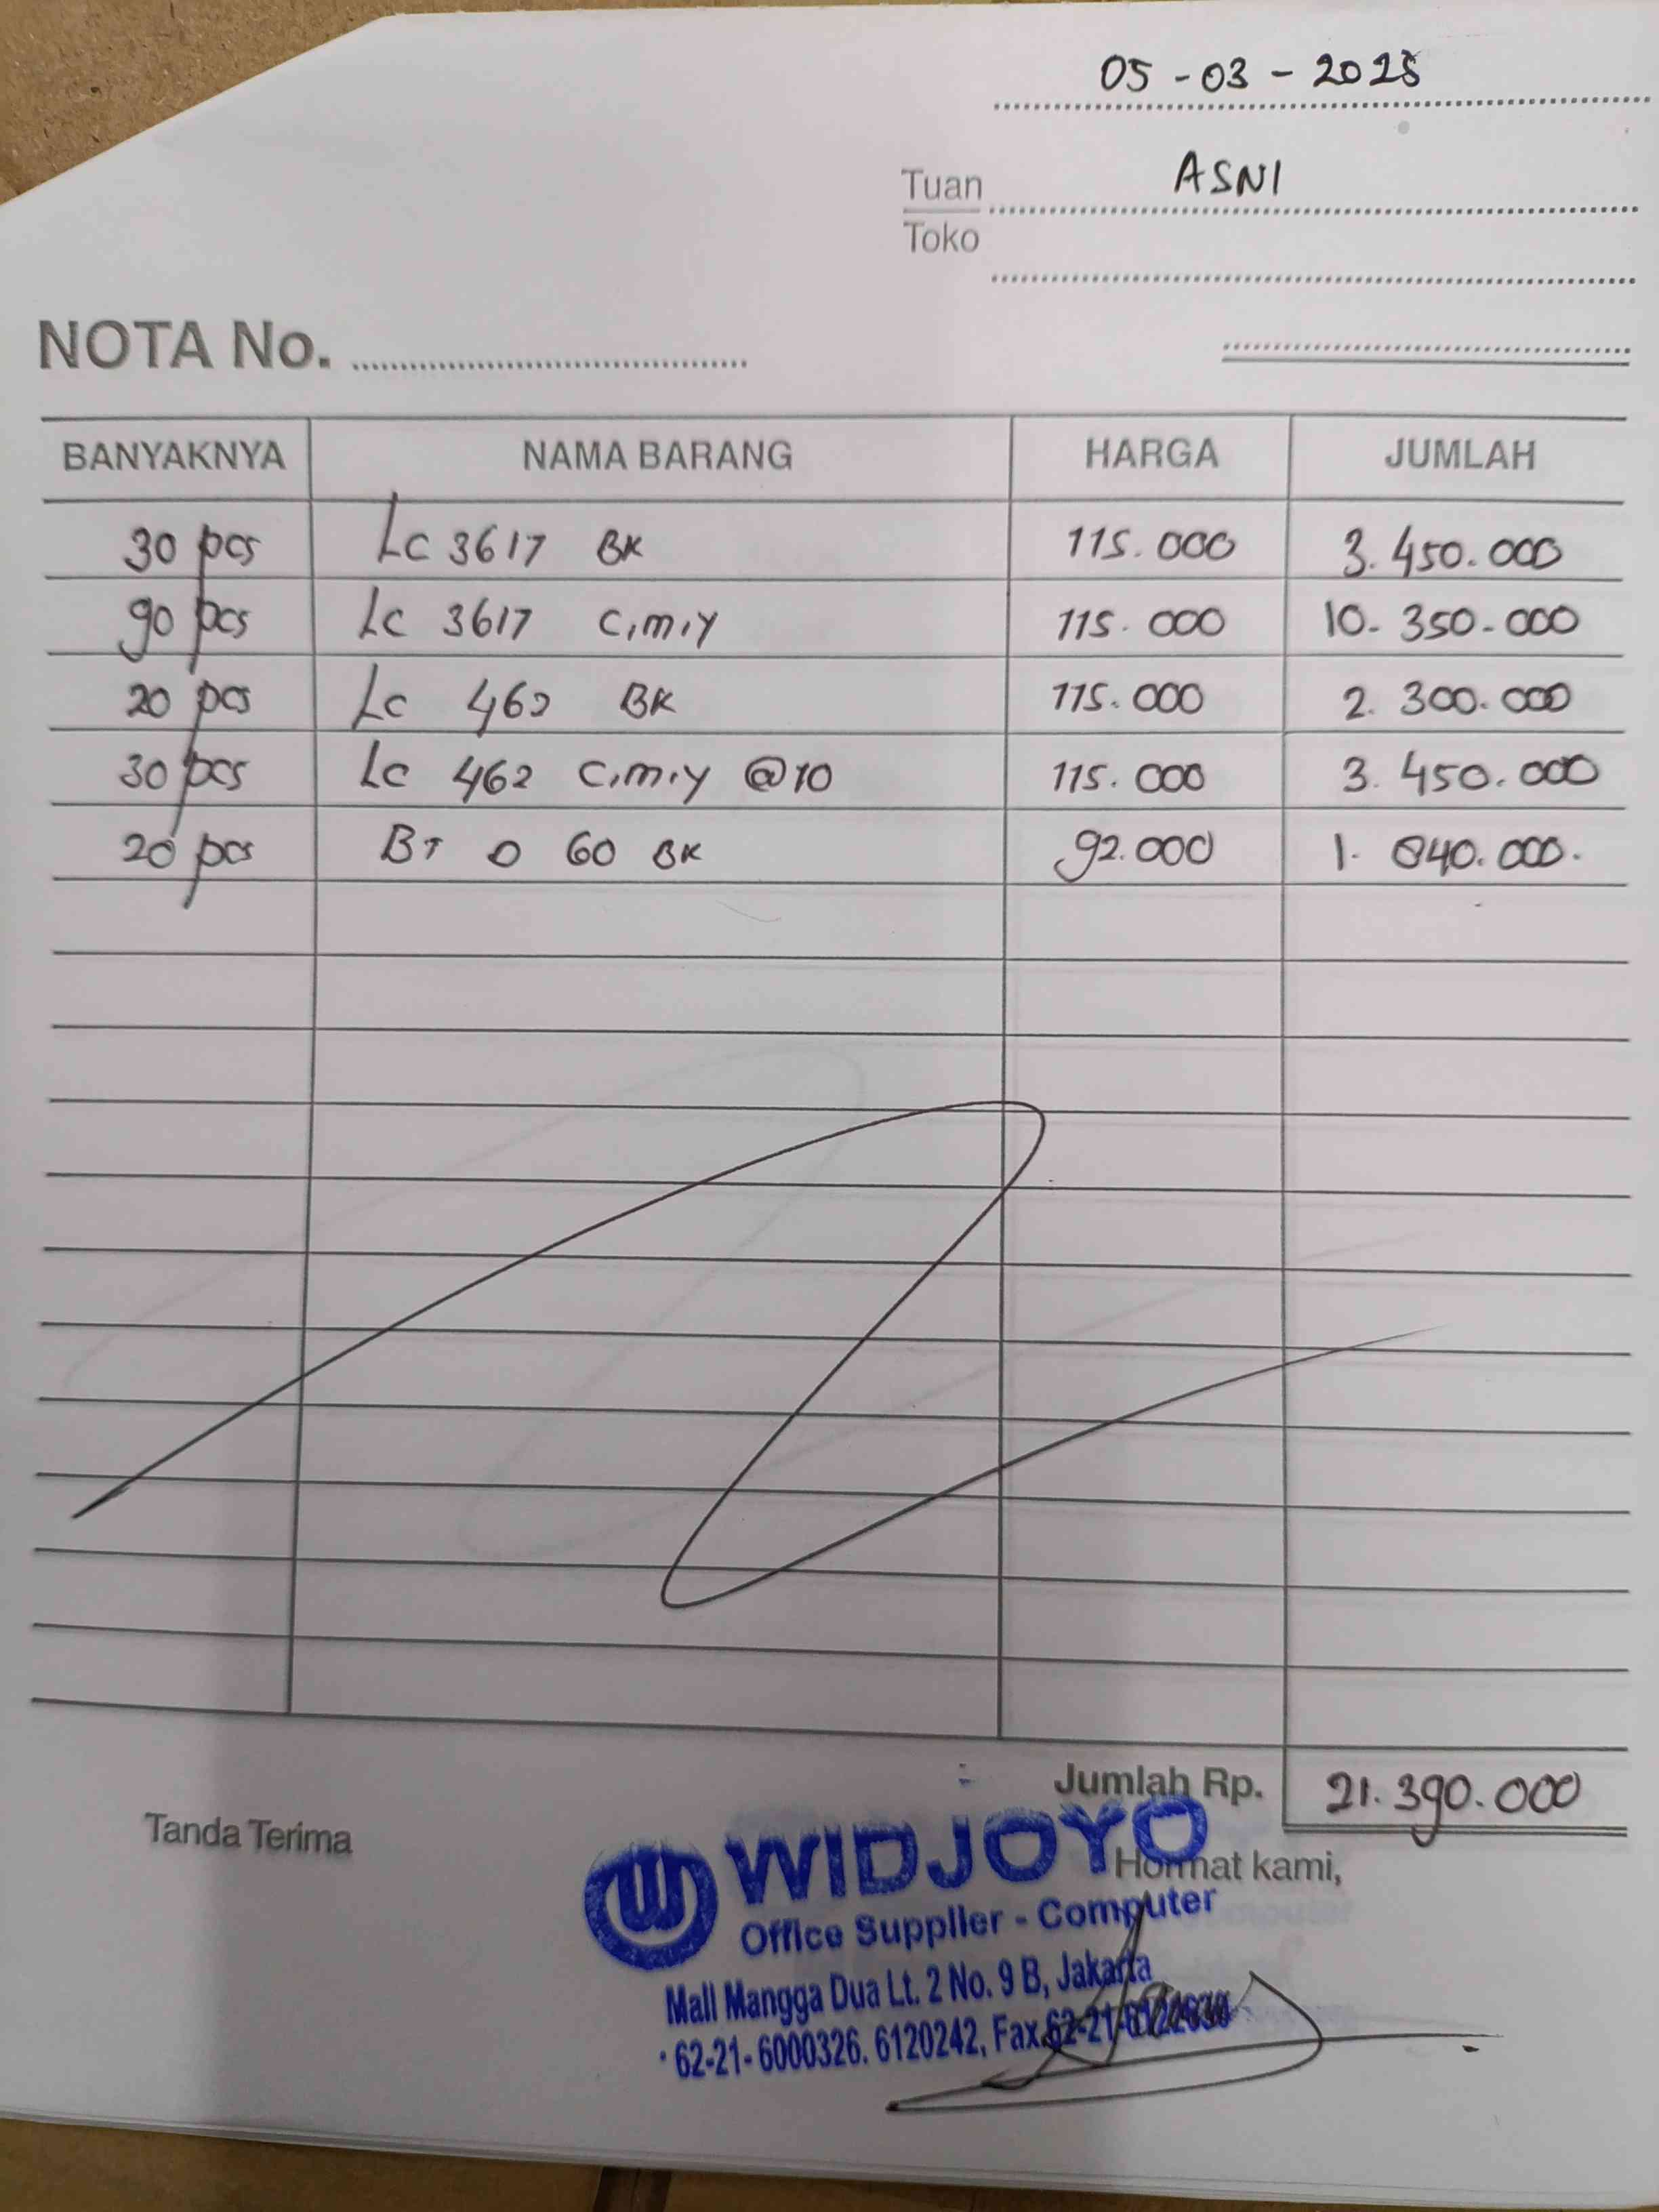 05 - 03 - 2025
Tuan ASNI
Toko
NOTA No.
BANYAKNYA NAMA BARANG HARGA JUMLAH
30 pcs Lc 3617 BK 115.000 3.450.000
90 pcs Lc 3617 C,m,y 115.000 10.350.000
20 pcs Lc 462 BK 115.000 2.300.000
30 pcs Lc 462 C,m,y @10 115.000 3.450.000
20 pcs BT D 60 BK 92.000 1.840.000.
Jumlah Rp. 21.390.000
Tanda Terima
Hormat kami,
WIDJOYO
Office Supplier - Computer
Mall Mangga Dua Lt. 2 No. 9 B, Jakarta
62-21- 6000326. 6120242, Fax.62-21-6122630